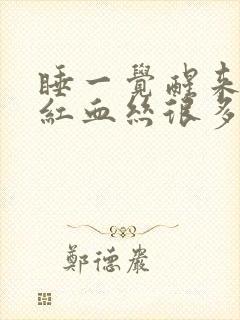 睡一覺醒來
紅血絲很多
鄭德巖